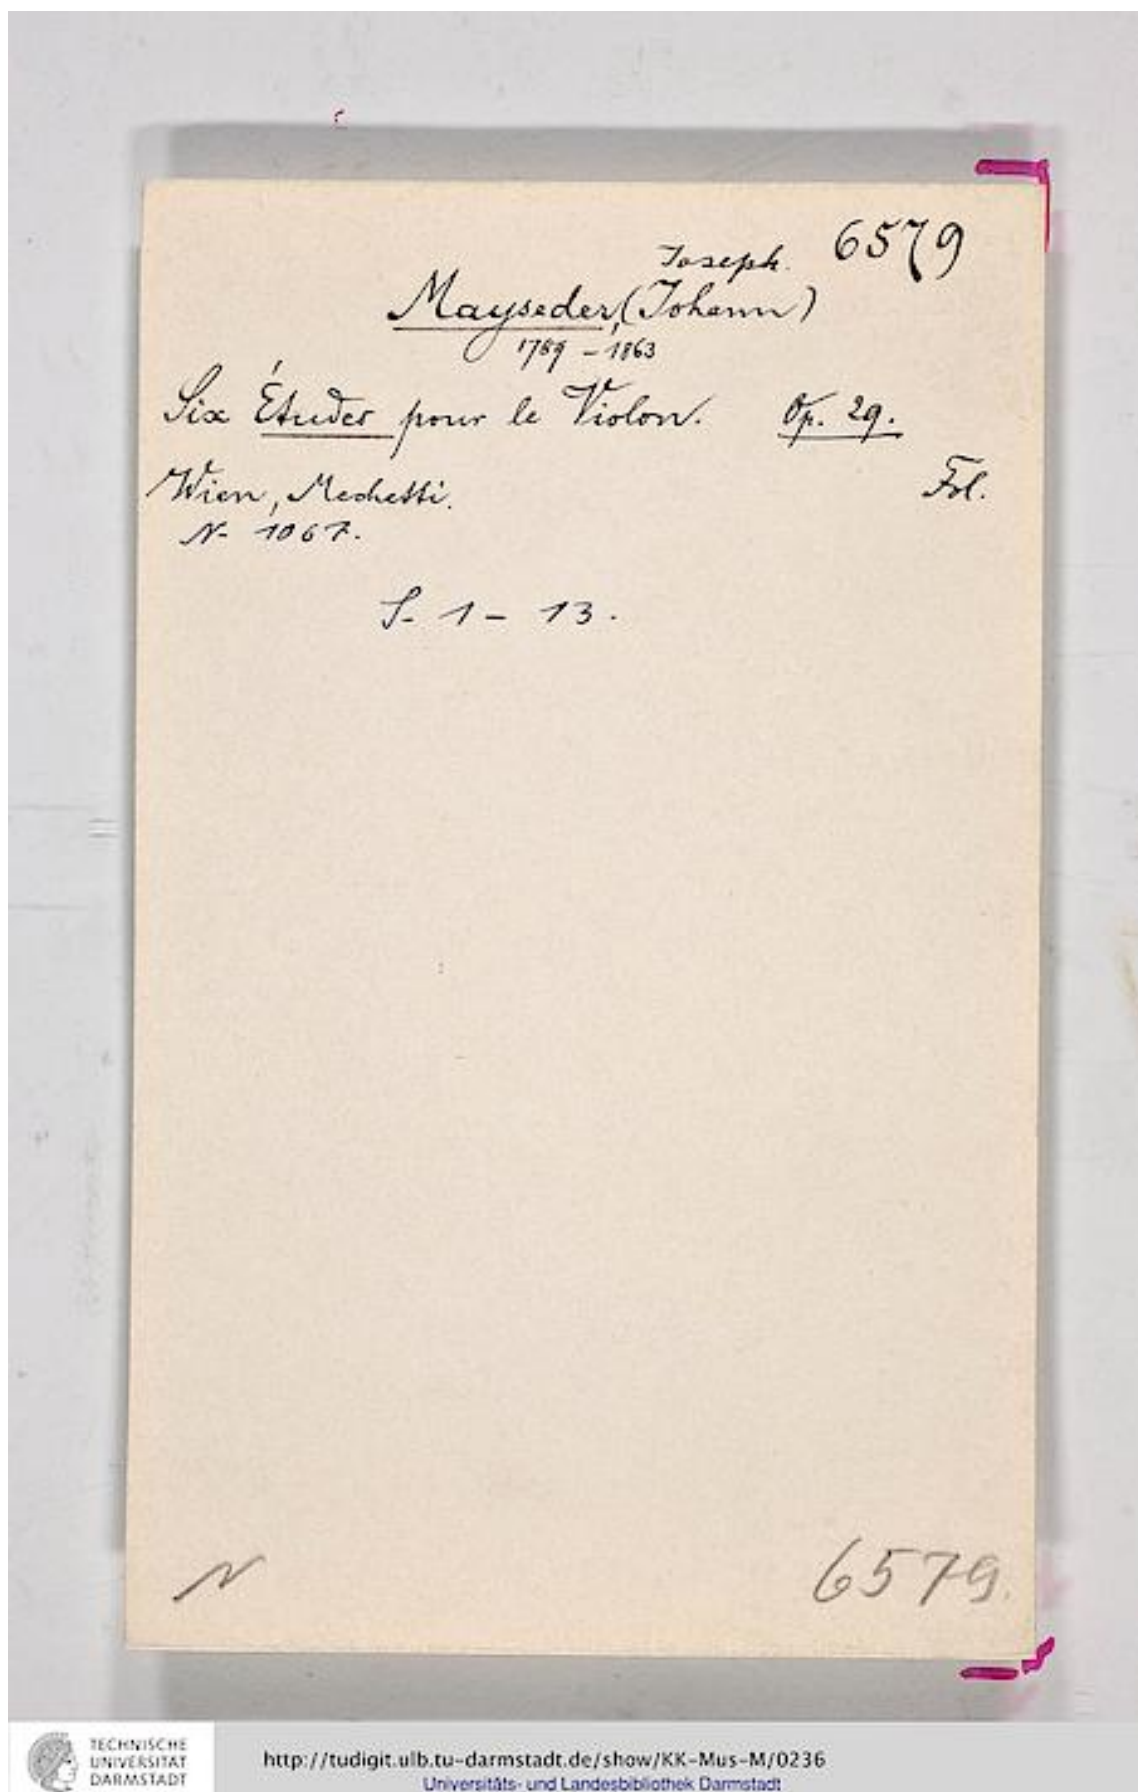 6579
Joseph.
Mayseder, (Johann)
1789 - 1863
Six Études pour le Violon. Op. 29.
Wien, Mechetti. Fol.
N- 1067.
S. 1 - 13.
N 6579.
TECHNISCHE
UNIVERSITÄT
DARMSTADT
http://tudigit.ulb.tu-darmstadt.de/show/KK-Mus-M/0236
Universitäts- und Landesbibliothek Darmstadt